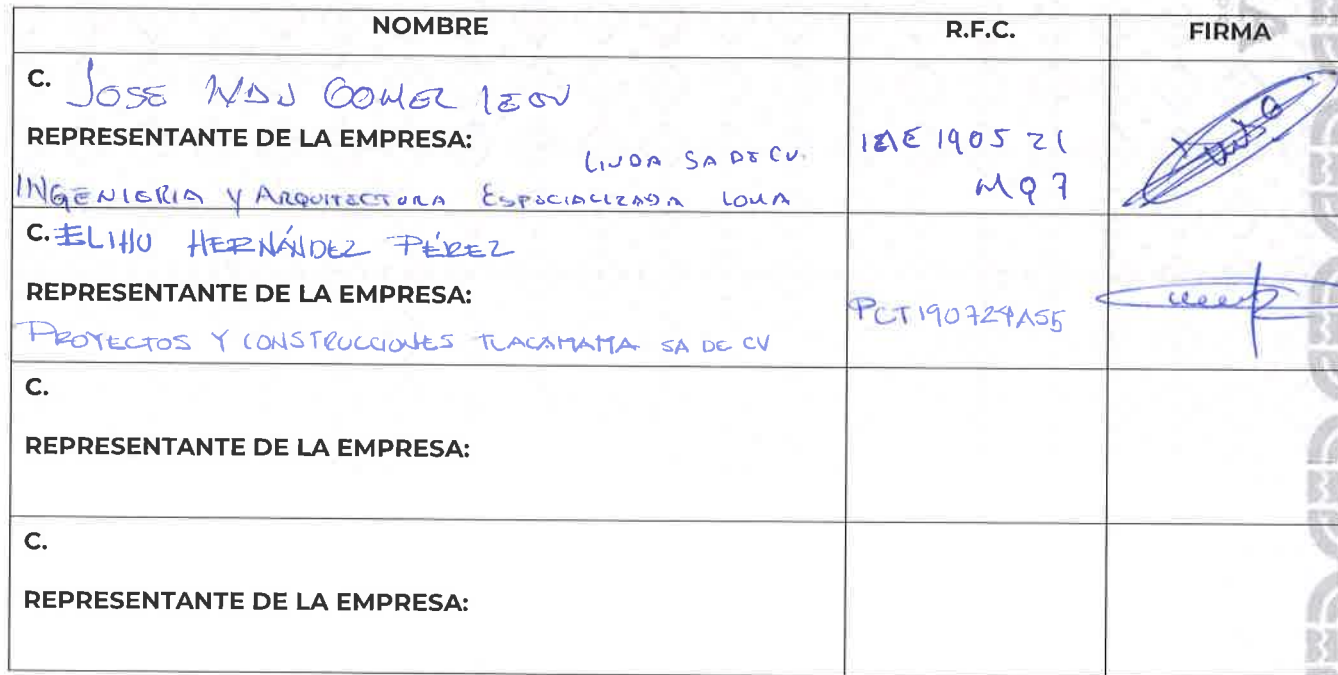 NOMBRE R.F.C. FIRMA
C. JOSE GOMEZ LEON
REPRESENTANTE DE LA EMPRESA:
LINDA SA DE CV.
INGENIERIA Y ARQUITECTURA ESPECIALIZADA LOMA
IAE 1905 21
MQ7
C. ELIHU HERNÁNDEZ PÉREZ
REPRESENTANTE DE LA EMPRESA:
PROYECTOS Y CONSTRUCCIONES TLACAMAMA SA DE CV
PCT190724A55
C.
REPRESENTANTE DE LA EMPRESA:
C.
REPRESENTANTE DE LA EMPRESA: